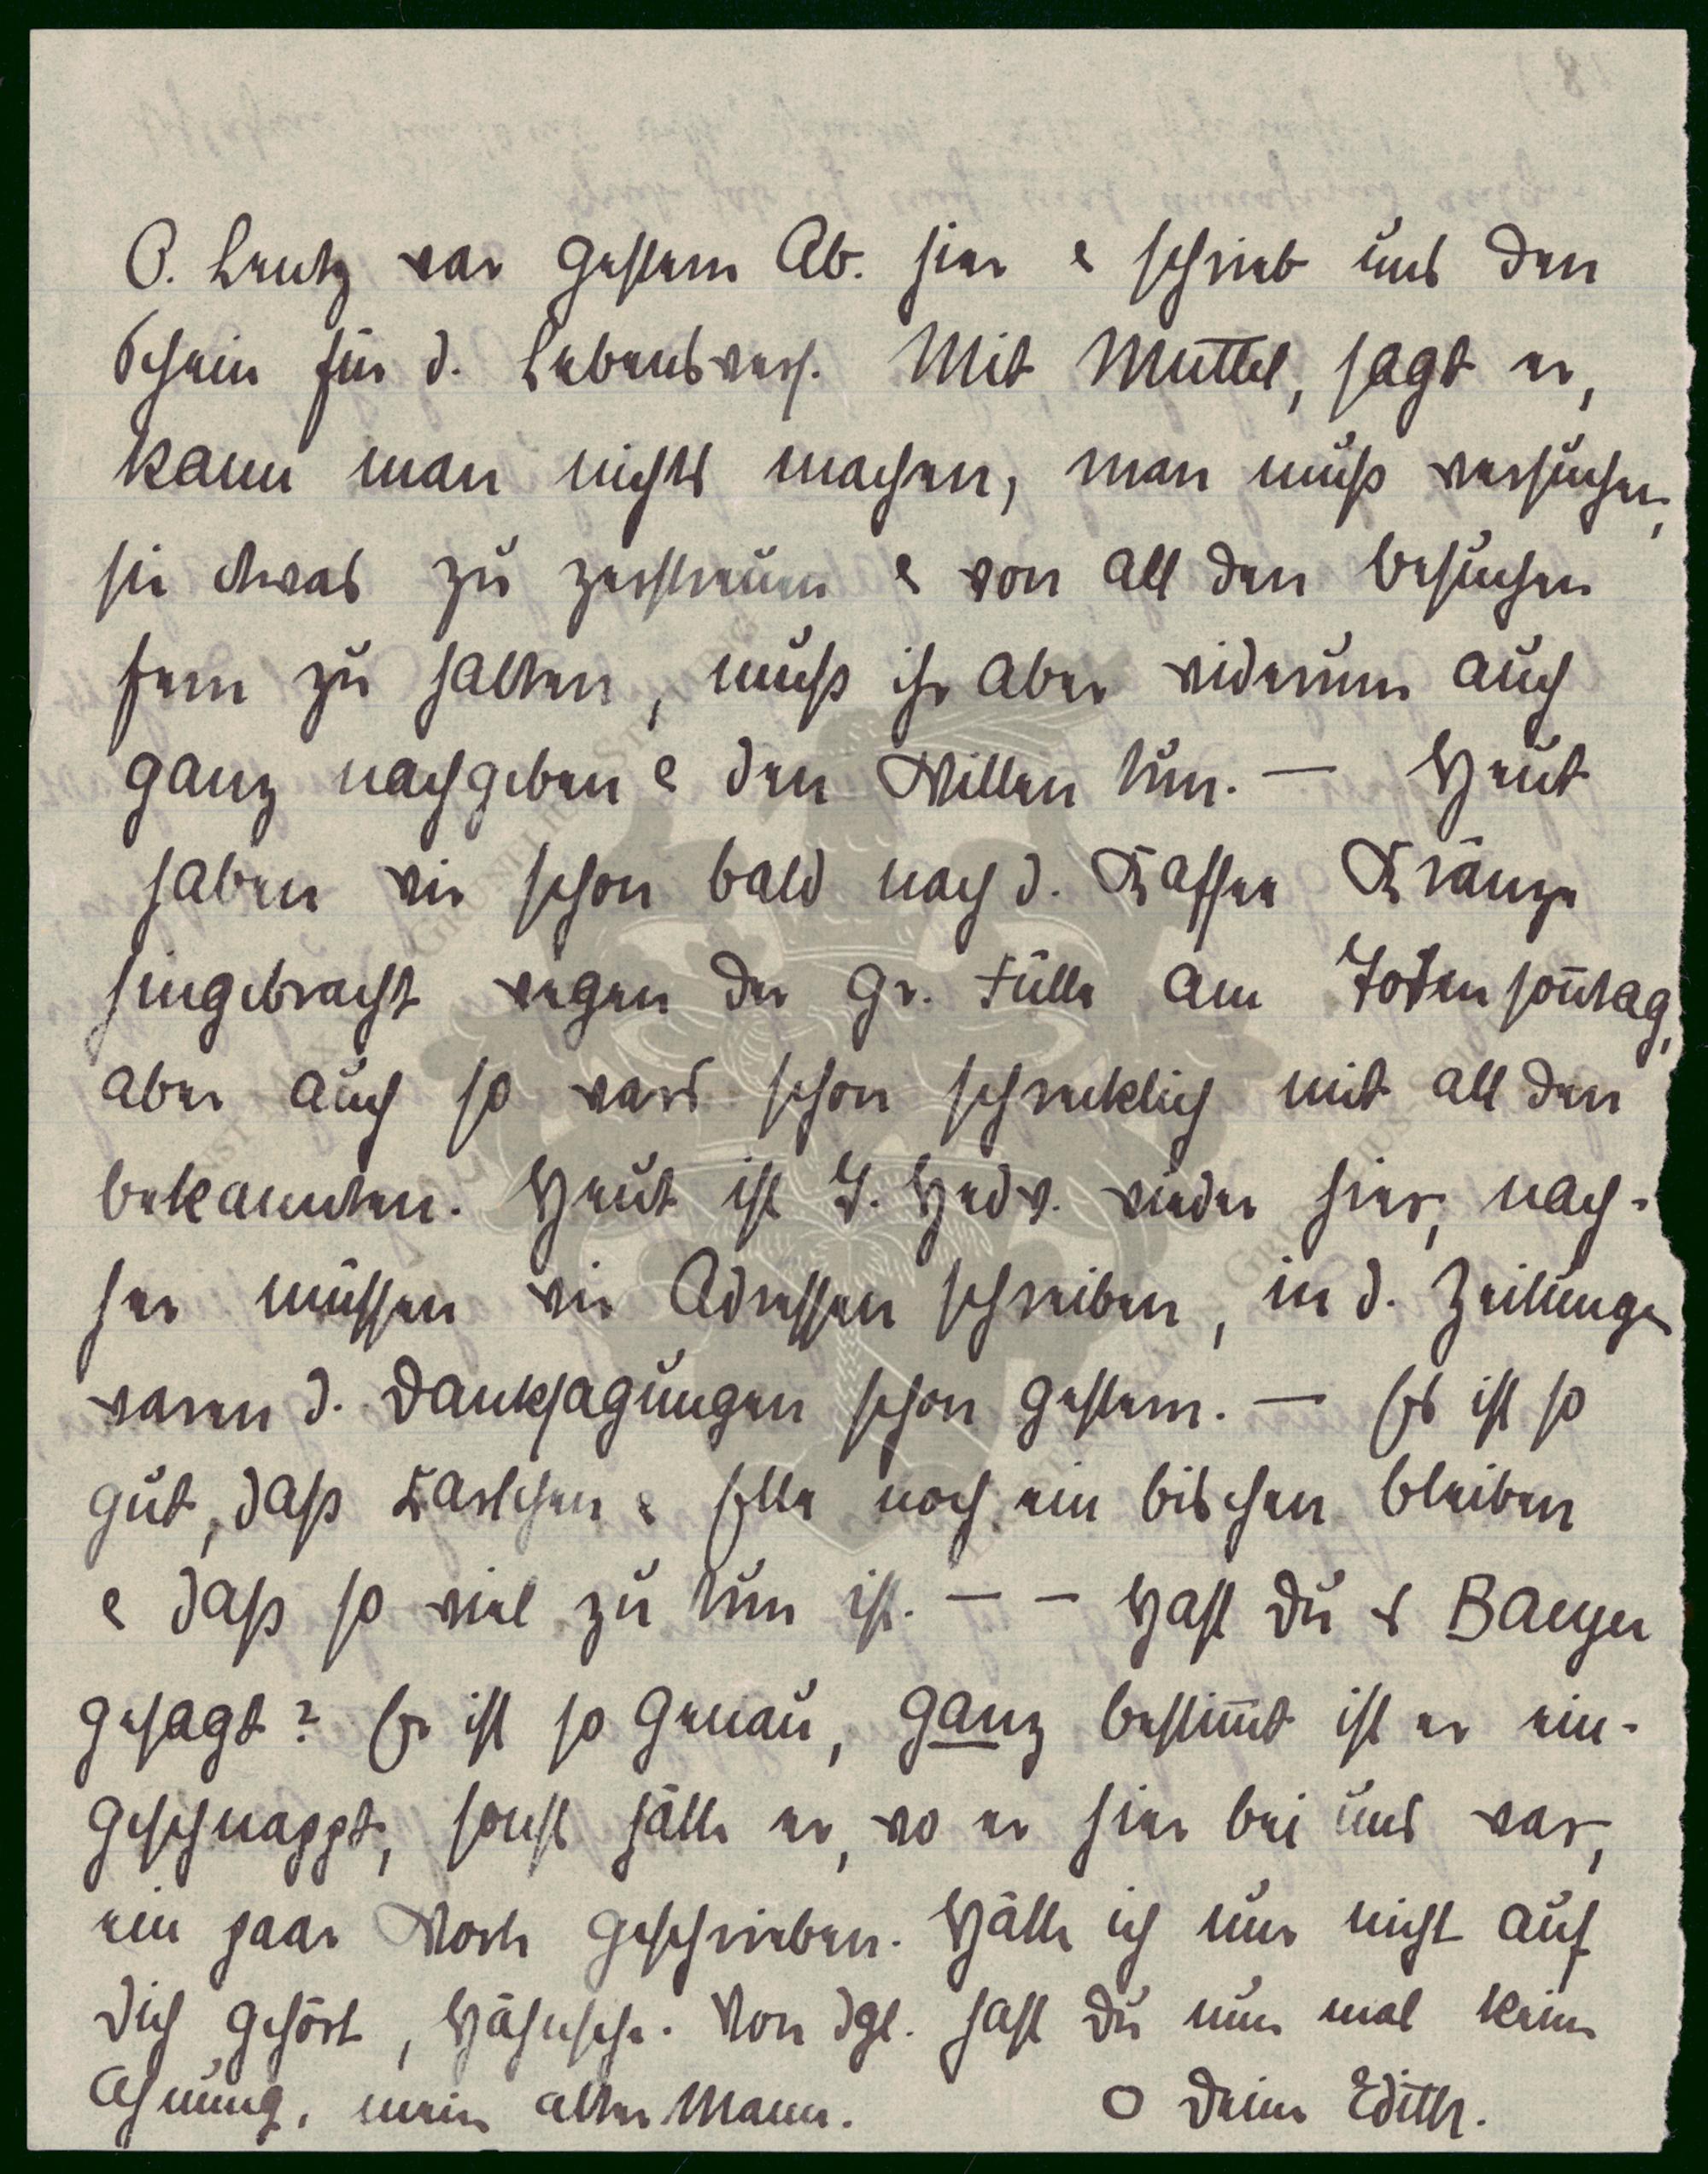 O. Lentz war gestern Ab. hier & schrieb uns den
Schein für d. Lebensvers. Mit Muttel, sagt er,
kann man nichts machen, man muß versuchen,
sie etwas zu zerstreuen & von all den Besuchen
fern zu halten, muß ihr aber widerum auch
ganz nachgeben & den Willen tun. — Heut
haben wir schon bald nach d. Kaffee Kränze
hingebracht wegen der gr. Fülle am Totensom̄tag,
aber auch so wars schon schrecklich mit all den
Bekannten. Heut ist T. Hedw. wieder hier, nach-
her müssen wir Adressen schreiben, in d. Zeitungen
waren d. Danksagungen schon gestern. — Es ist so
gut, daß Karlchen & Elle noch ein bischen bleiben
& daß so viel zu tun ist. — — Hast Du es
gesagt? Er ist so genau, ganz bestim̄t ist er ein-
geschnappt, sonst hätte er, wo er hier bei uns war,
ein paar Worte geschrieben. Hätte ich nur nicht auf
Dich gehört, Hähnsche. Von dgl. hast Du nun mal keine
Ahnung, mein alter Mann. O Deine Edith.